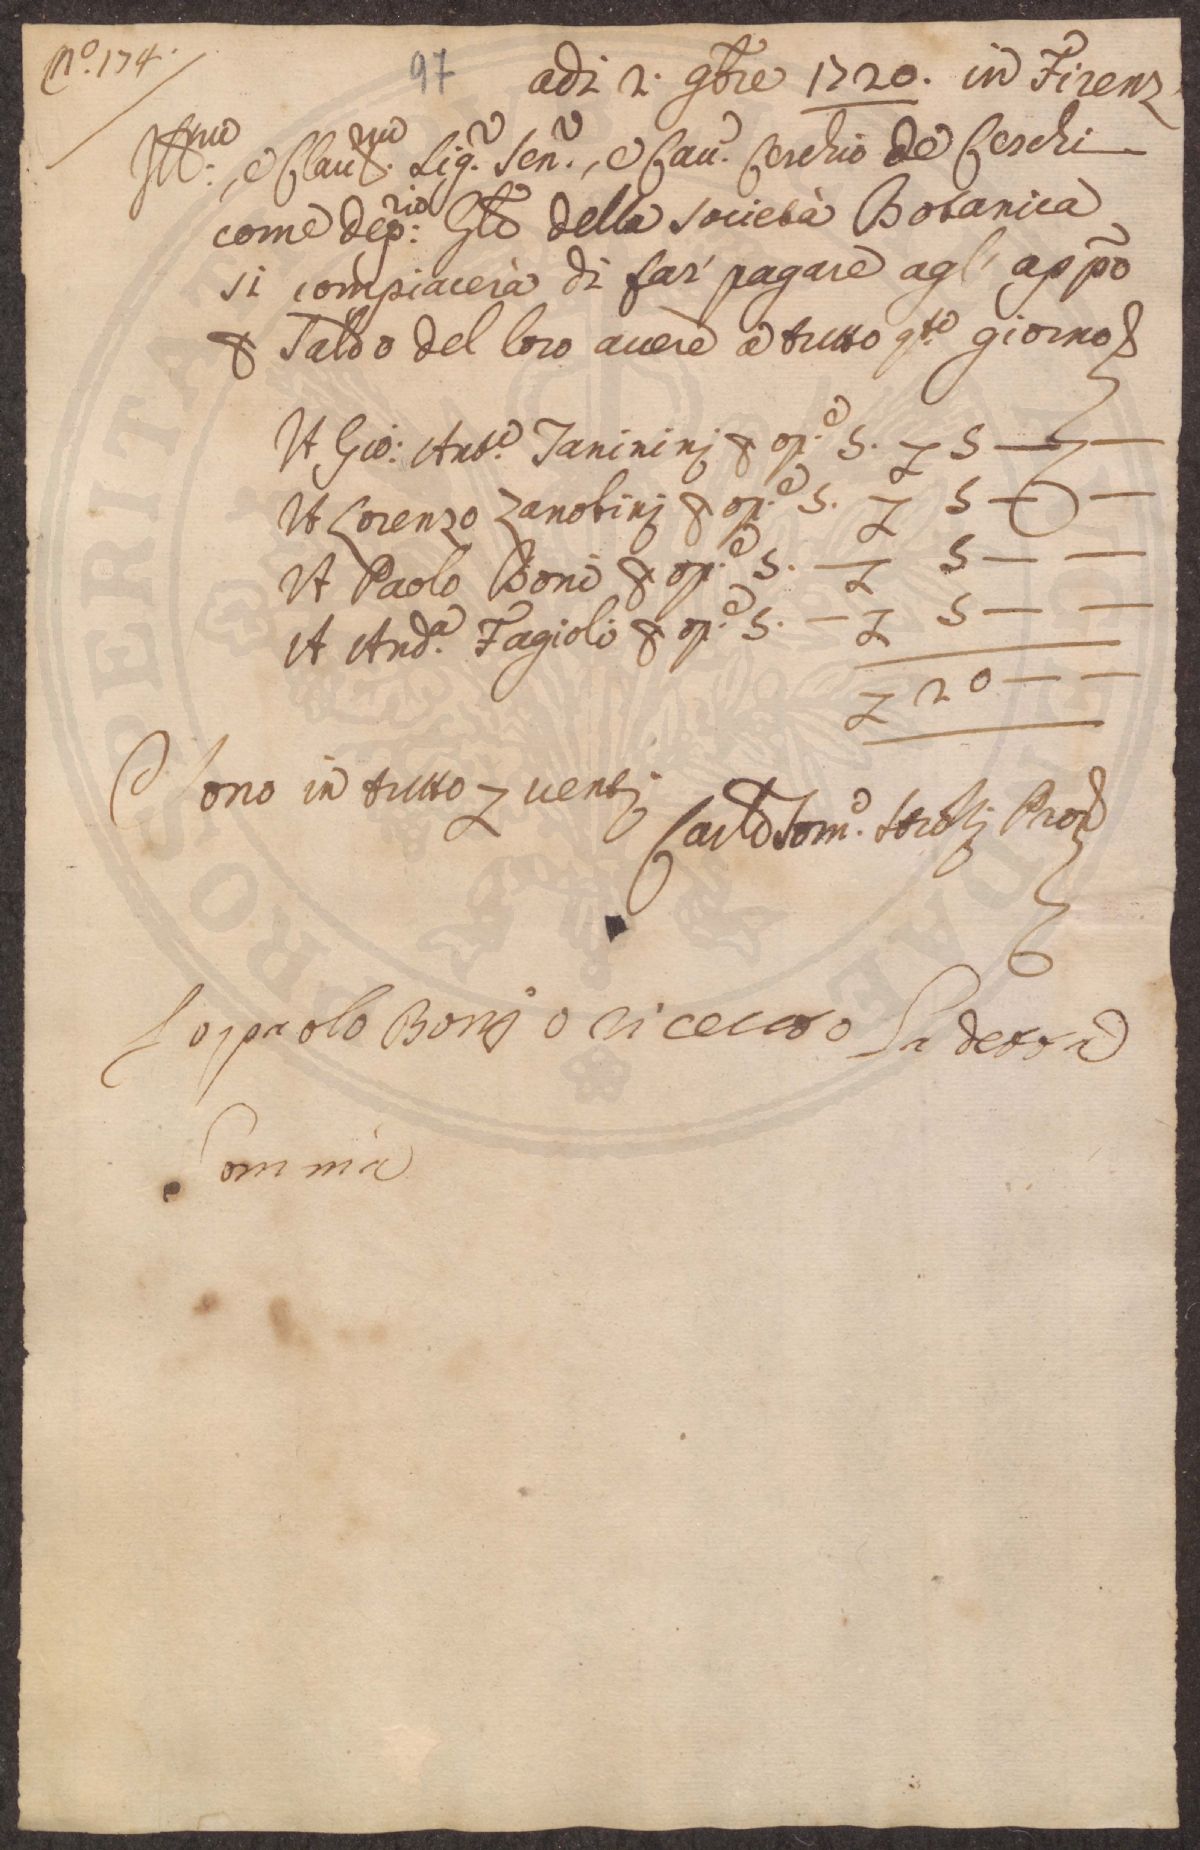 N.º 174.
97
adi 2. 9bre 1720. in Firenz
Ill.mo, e Clariss.mo Sig.r Sen.r, e Cau.r Cerchio de Cerchi
come dep.rio Gle della Società Botanica
si compiacerà di far' pagare agl' appõ
& Saldo del loro auere a tutto q.to giorno
A Gio: Ant.o Janininj & op.e 5. £ 5 — —
A Lorenzo Zanobinj & op.e 5. £ 5 — —
A Paolo Boni & op.e 5. — £ 5 — —
A And.a Fagioli & op.e 5. — £ 5 — —
£ 20 — —
Sono in tutto £ uentj
Carlo Tom.o Strozzj Pro
Io paolo Bonj o riceuto La detta
Somma